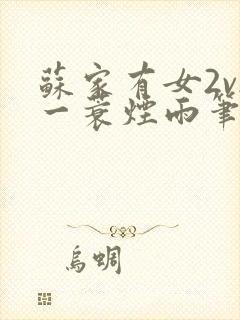 蘇家有女2v
一蓑煙雨筆
烏蜩